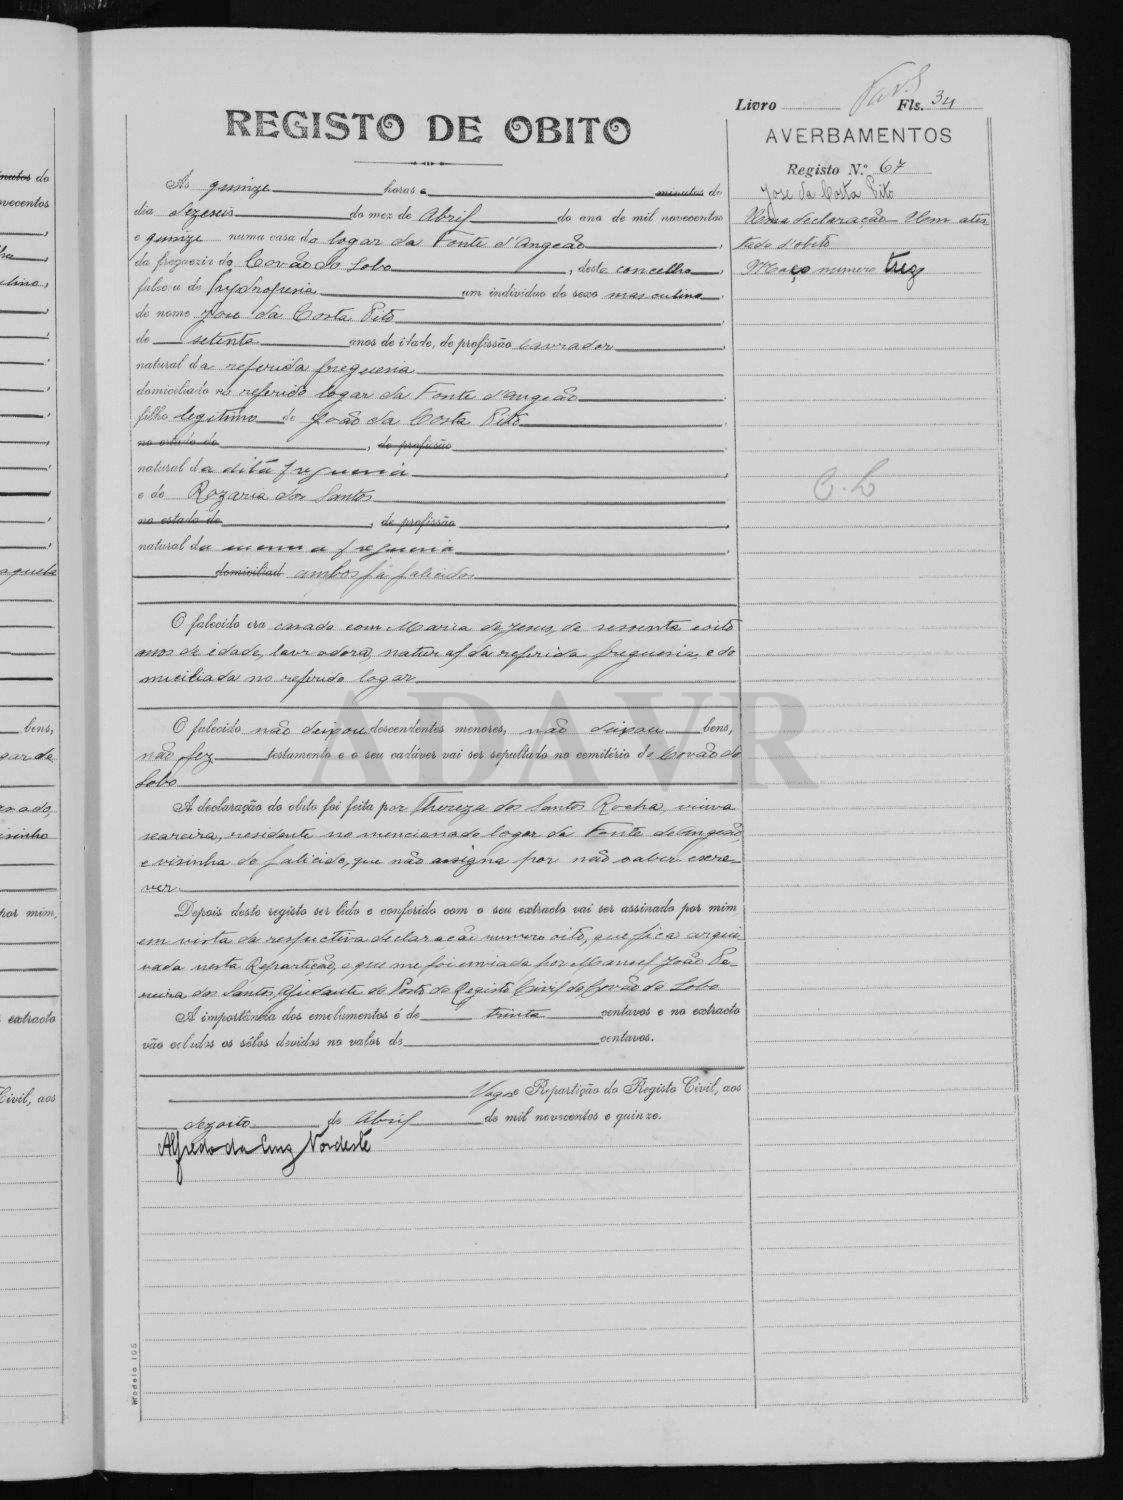 Livro Fls. 34
REGISTO DE OBITO
AVERBAMENTOS
Registo N.º 67
Jose da Costa Pito
Uma declaração Um ates-
tado d'obito
Maço numero trez
C. L
Ás quinze horas e minutos do
dia dezeseis do mez de Abril do ano de mil novecentos
e quinze numa casa do logar da Fonte d'Angeão,
da freguezia do Covão do Lobo, deste concelho,
faleceu de hydropesia um individuo do sexo masculino,
de nome Jose da Costa Pito,
de setenta anos de idade, de profissão lavrador,
natural da referida freguesia
domiciliado no referido logar da Fonte d'Angeão,
filho legitimo de João da Costa Pito,
no estado de , de profissão
natural da dita freguesia,
e de Rozaria dos Santos
no estado de , de profissão ,
natural da mesma freguesia,
domiciliad ambos já falecidos
O falecido era casado com Maria de Jesus, de sessenta e oito
anos de edade, lavradora, natural da referida freguesia, e do
miciliada no referido logar
O falecido não deixou descendentes menores, não deixou bens,
não fez testamento e o seu cadáver vai ser sepultado no cemitério do Covão do
Lobo
A declaração do obito foi feita por Thereza dos Santos Rocha, viuva
seareira, residente no mencionado logar da Fonte de Angeão,
e visinha do falicido, que não assigna por não saber escre-
ver.
Depois deste registo ser lido e conferido com o seu extracto vai ser assinado por mim
em vista da respectiva declaração numero oito, que fica arqui-
vada nesta Repartição, e que me foi enviada por Manoel João Pe-
reira dos Santos, Ajudante do Posto do Registo Civil do Covão do Lobo
A importância dos emolumentos é de trinta centavos e no extracto
vão colados os sêlos devidos no valor de centavos.
Vagos Repartição do Registo Civil, aos
dezoito de Abril de mil novecentos e quinze.
Alfredo da Cruz Nordeste
Modelo 105
ADAVR